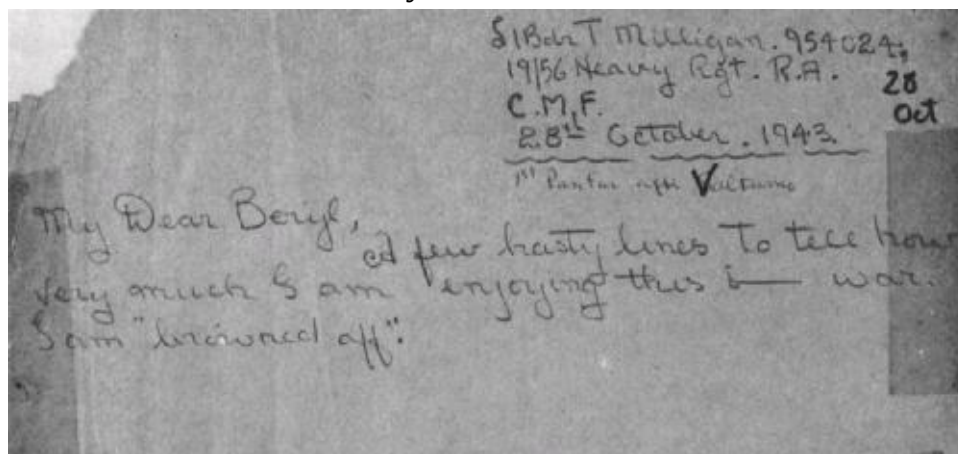 L/Bdr T Milligan. 954024,
19/56 Heavy Rgt. R.A.
C.M.F.
28th October. 1943.
28
Oct
1st after Volturno
My Dear Beryl,
a few hasty lines to tell how
very much I am enjoying this b—— war.
I am "browned off".